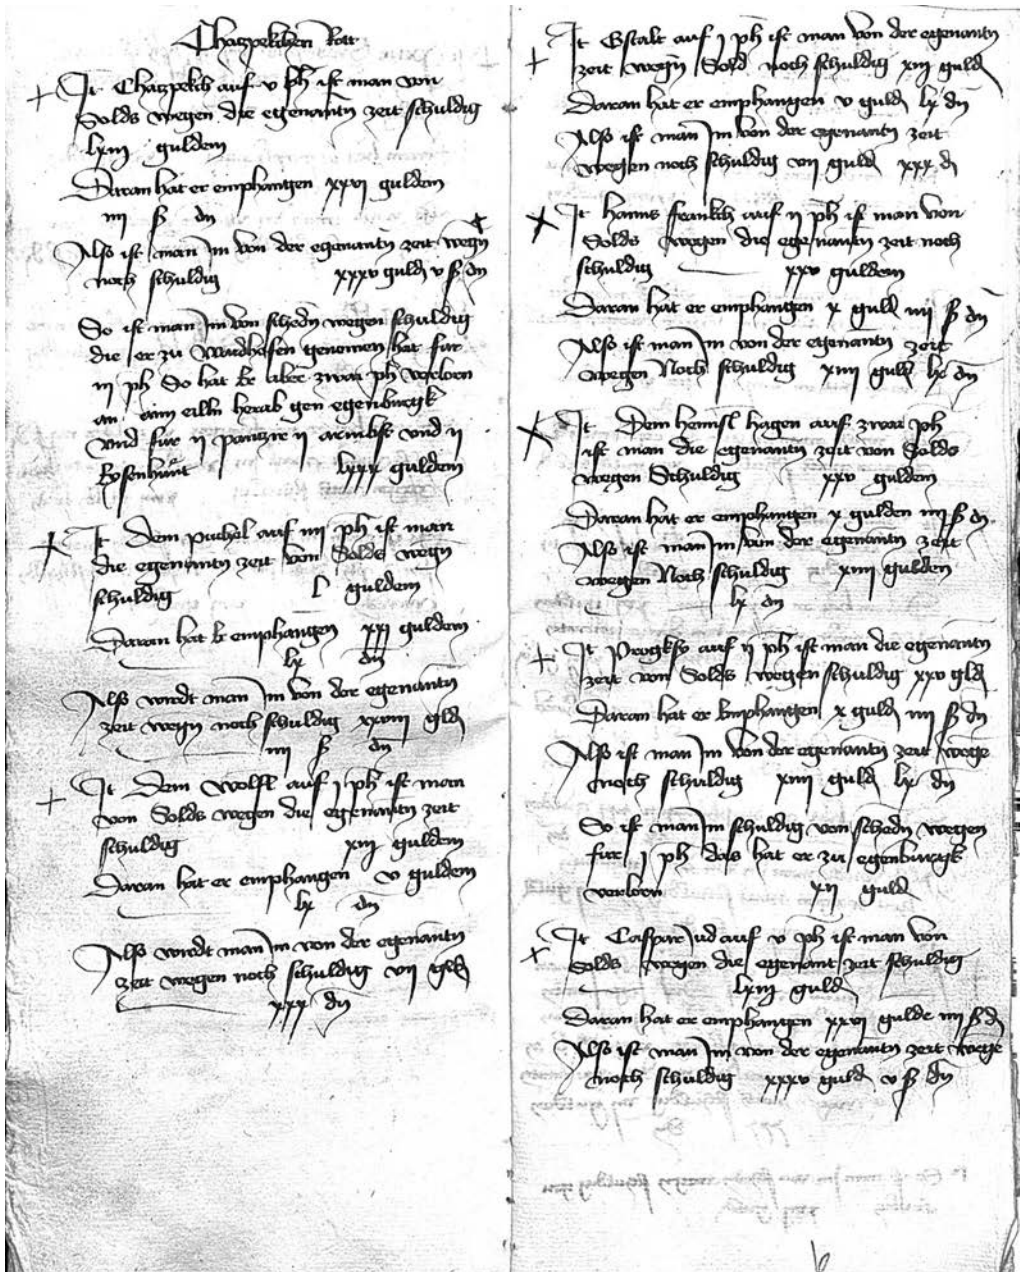 Chaczpekchen Rott
It Chaczpekch auf v ph ist man von
Solds wegen die egenantn zeit schuldig
lxiii guldein
Daran hat er emphangen xxvi guldein
iiii ß dn
Also ist man Im von der egenantn zeit wegn
noch schuldig xxxv guld v ß dn
So ist man Im von schedn wegen schuldig
die er zu Waidhofen genomen hat fur
iii ph So hat Er aber zwai ph verlorn
an aim eilln herab gen egenburgk
vnd fur ii panczir ii armbst vnd ii
Eysenhuet lxxx guldein
It Dem puchel auf iiii ph ist man
die egenantn zeit von Solds wegn
schuldig l guldein
Daran hat Er emphangen xxi guldein
lx dn
Also wirdt man Im von der egenantn
zeit wegn noch schuldig xxviii gld
iiii ß dn
It Dem Wolfl auf i ph ist man
von Solds wegen die egenantn zeit
schuldig xiii guldein
Daran hat er emphangen v guldein
lx dn
Also wirdt man Im von der egenantn
zeit wegen noch schuldig vii gld
xxx dn
It Gstalt auf i ph ist man von der egenantn
zeit wegn Sold noch schuldig xiii guld
Daran hat er emphangen v guld lx dn
Also ist man Im von der egenantn zeit
wegen noch schuldig vii guld xxx d
It Hanns frankh auf ii ph ist man von
Solds wegen die egenantn zeit noch
schuldig xxv guldein
Daran hat er emphangen x guld iiii ß dn
Also ist man Im von der egenantn zeit
wegen Noch schuldig xiiii guld lx dn
It Dem hennsl hagen auf zwai ph
ist man die egenantn zeit von Solds
wegen Schuldig xxv guldein
Daran hat er emphangen x gulden iiii ß dn
Also ist man Im von der egenantn zeit
wegen Noch schuldig xiiii gulden
lx dn
It Progksy auf ii ph ist man die egenantn
zeit von Solds wegen schuldig xxv gld
Daran hat er Emphangen x guld iiii ß dn
Also ist man Im von der egenantn zeit wege
noch schuldig xiiii guld lx dn
So ist man Im schuldig von schedn wegen
fur i ph das hat er zu egenburgk
verlorn xii guld
It Caspar Jud auf v ph ist man von
Solds wegen die egenant zeit schuldig
lxiii guld
Daran hat er emphangen xxvi gulde iiii ß d
Also ist man Im von der egenantn zeit wege
noch schuldig xxxv guld v ß dn